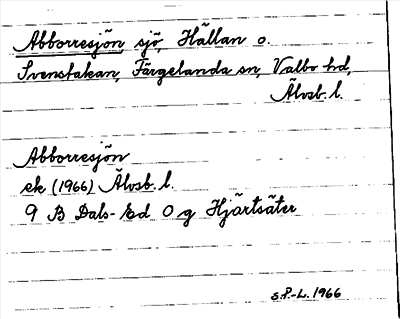 Abborresjön, sjö, Hällan o.
Svenstakan, Färgelanda sn, Valbo hd,
Älvsb. l.
Abborresjön
ek (1966) Älvsb. l.
9 B Dals-Ed O g Hjärtsäter
S.P.-L. 1966